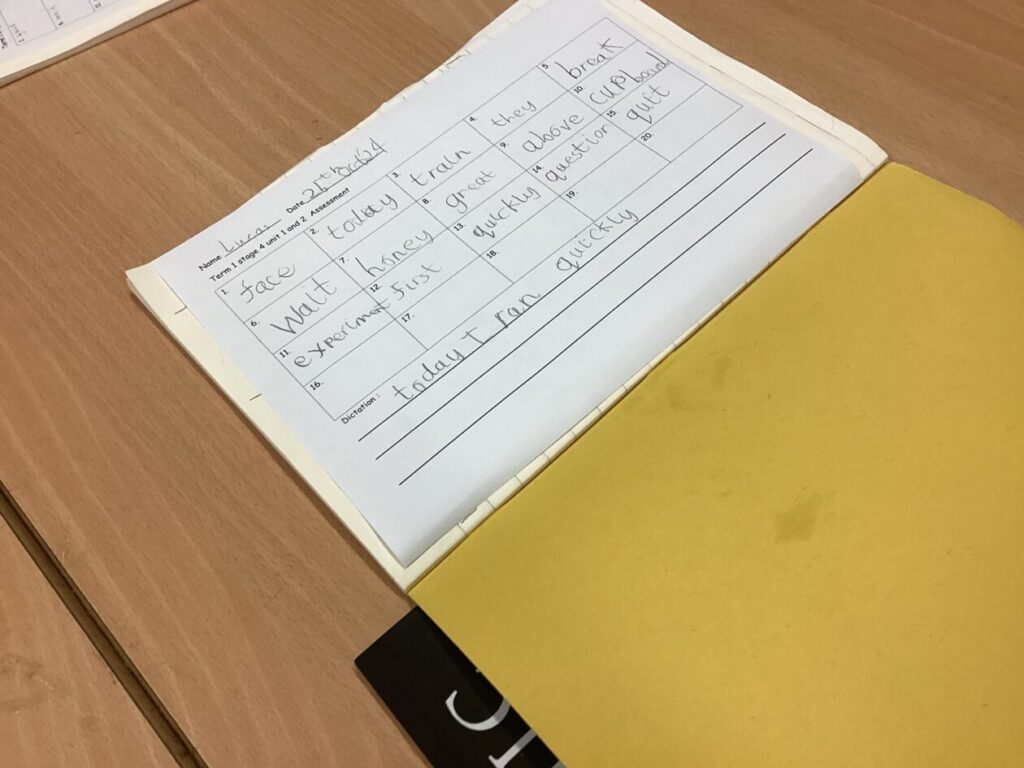 Name Lucas Date 25th Oct 24
Term 1 stage 4 unit 1 and 2 Assessment
1. face 2. today 3. train 4. they 5. break
6. Wait 7. honey 8. great 9. above 10. cupboard
11. experiment 12. first 13. quickly 14. question 15. quit
16. 17. 18. 19. 20.
Dictation :
today I ran quickly